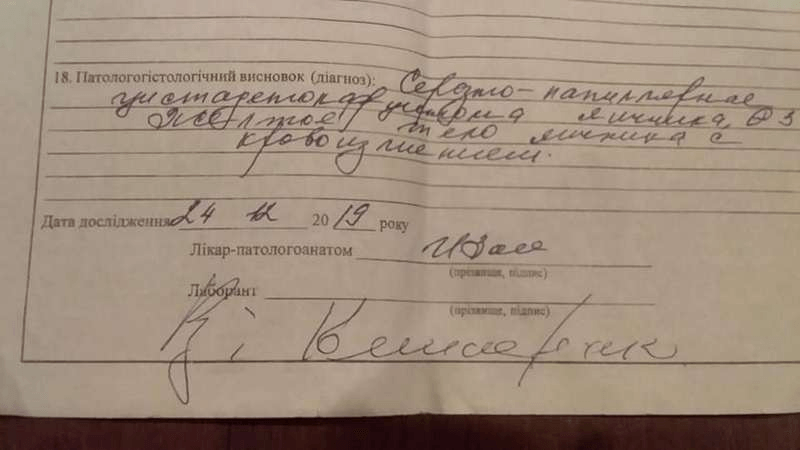 18. Патологогістологічний висновок (діагноз): Серозно-папиллярная
цистаденокарцинома яичника G3
Желтое тело яичника с
кровоизлиянием.
Дата дослідження 24 12 2019 року
Лікар-патологоанатом
(прізвище, підпис)
Лаборант
(прізвище, підпис)